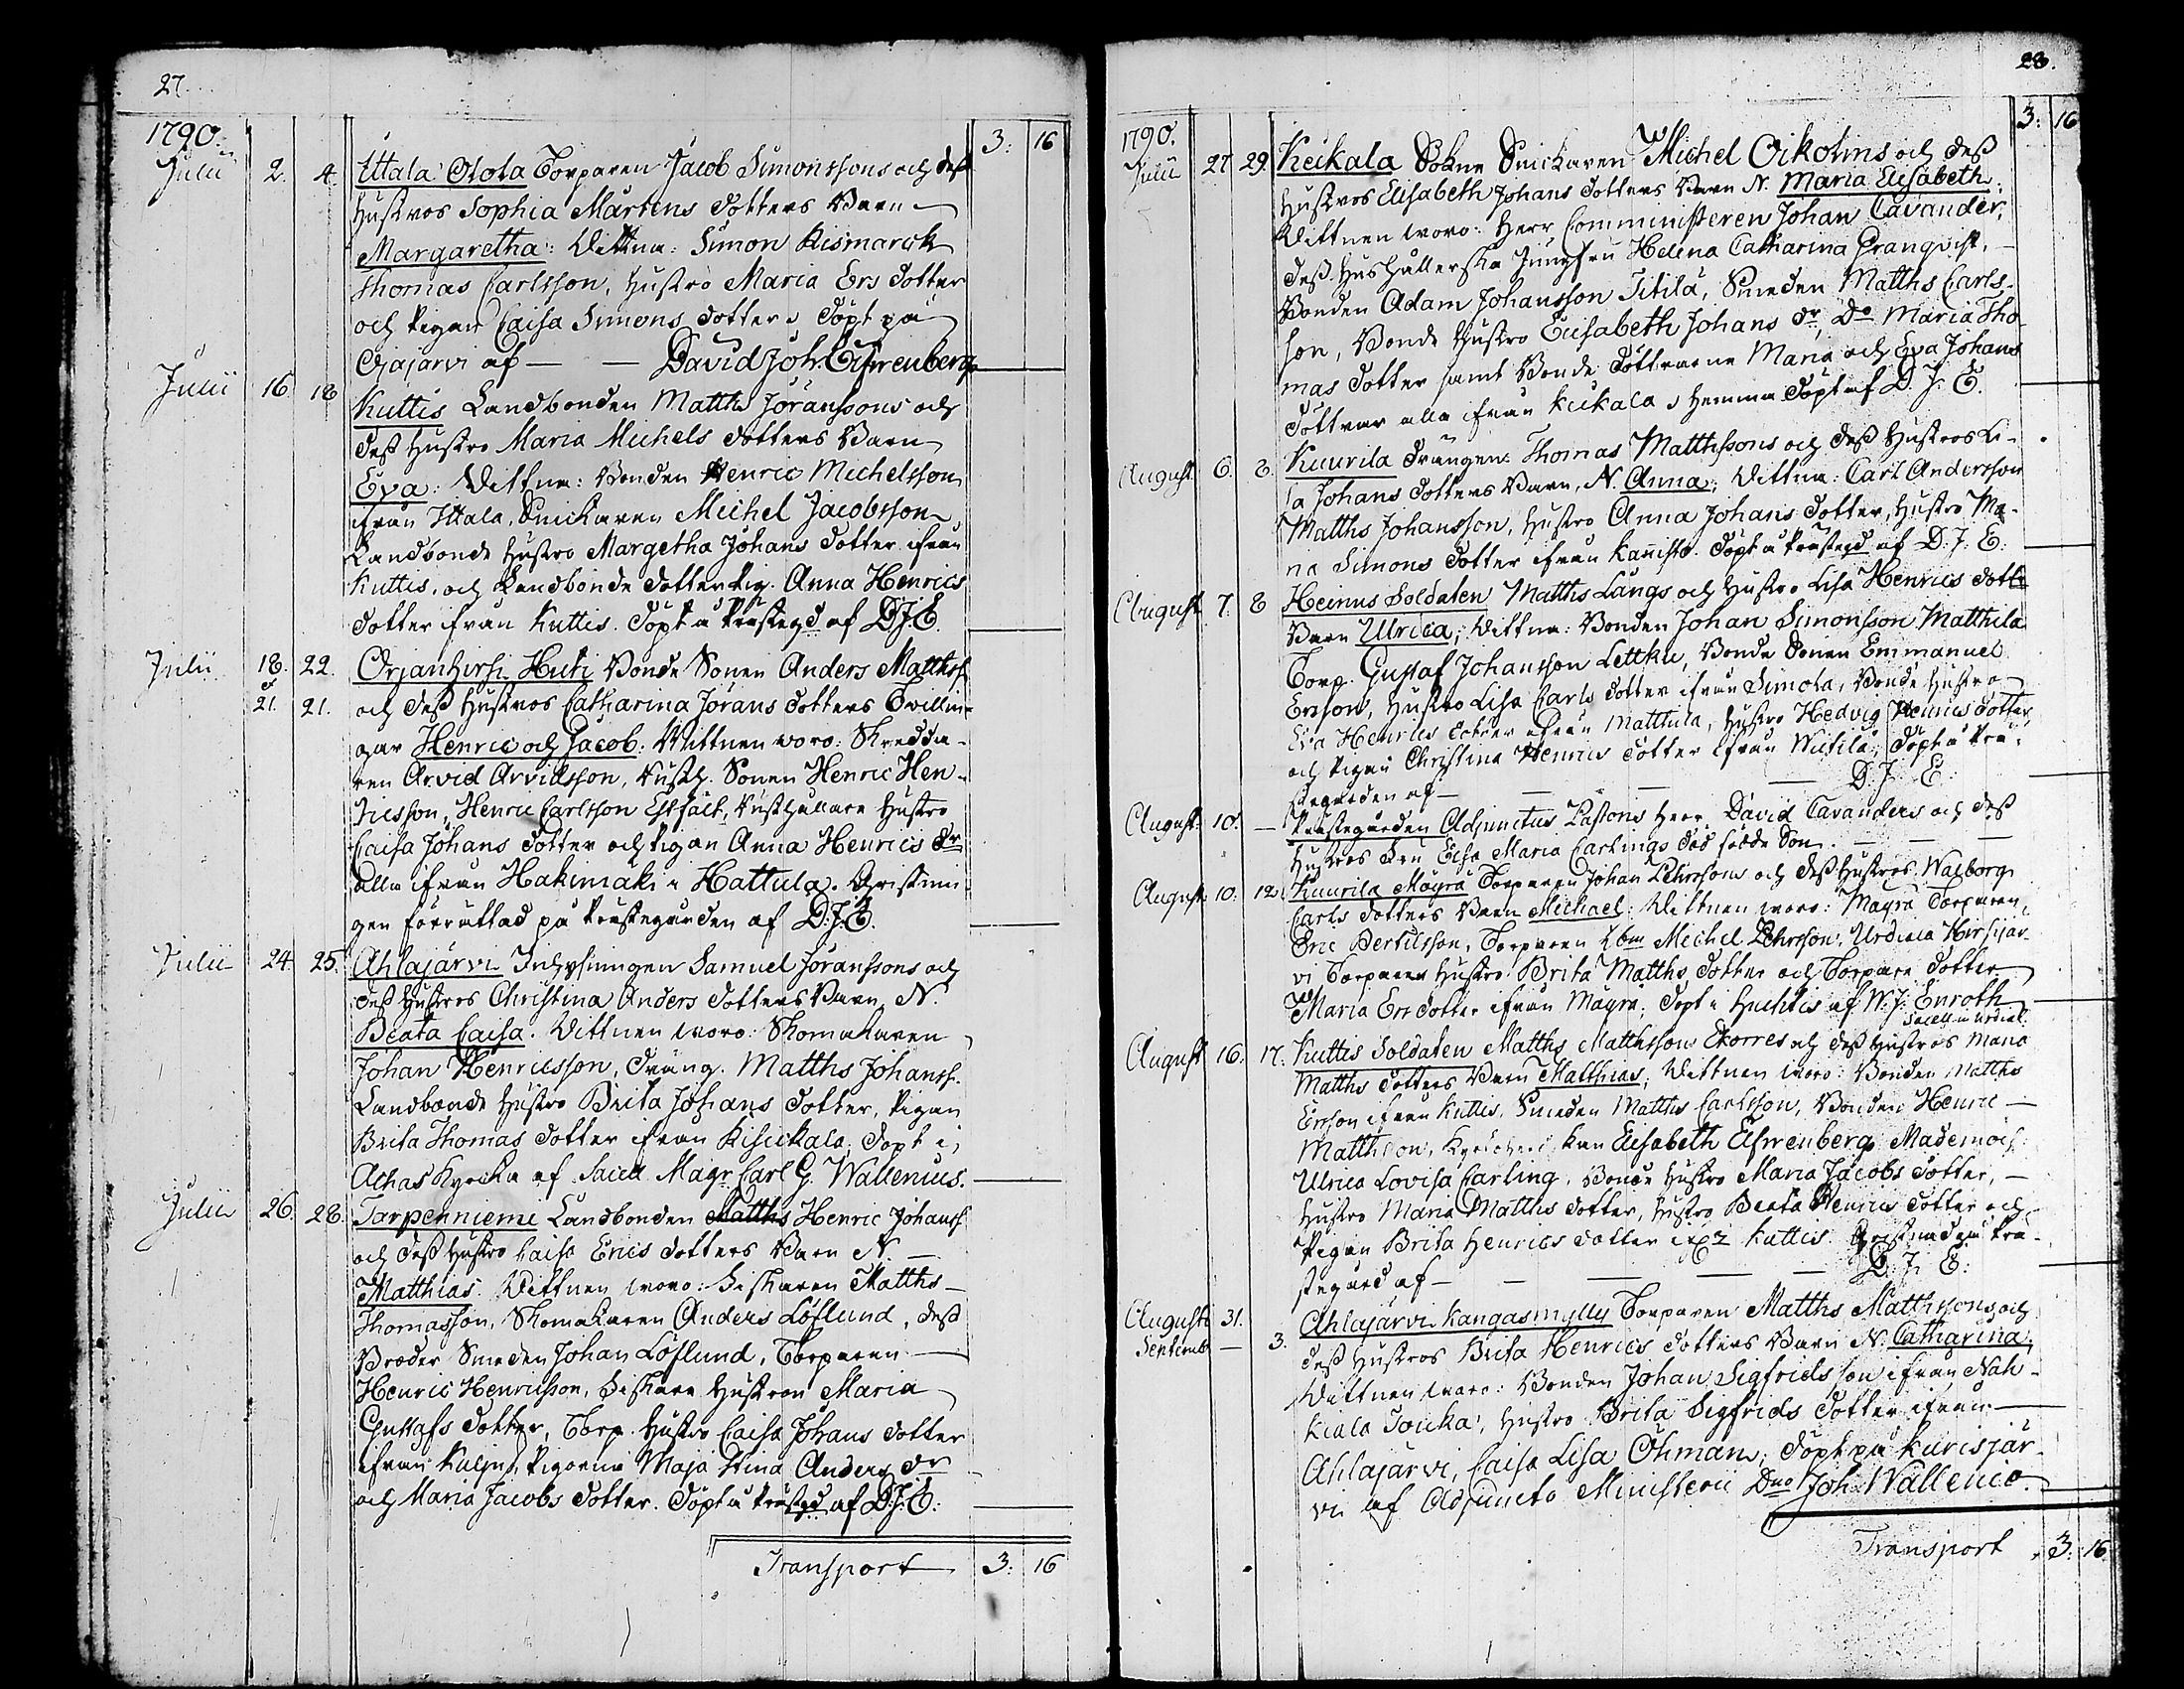 27.
1790.
3: 16
Julii 2. 4. Ittala Olola Torparen Jacob Simonssons och dess
Hustros Sophia Mårtens dotters Barn
Margaretha: Wittna: Simon Rismarck
Thomas Carlsson, Hustro Maria Ers dotter
och Pigan Caisa Simons dotter, döpt på
Ojajärvi af — — David Joh. Elfwenberg
Julii 16 18 Kuttis Landbonden Matths Jöranssons och
dess Hustro Maria Michels dotters Barn
Eva: Wittna: Bonden Henric Michelsson
ifrån Ittala, Snickaren Michel Jacobsson
Landbonde Hustro Margetha Johans dotter ifrån
Kuttis, och Landbonde dotter Pig. Anna Henrics
dotter ifrån Kuttis. Döpt å Prästegd af D.J.E.
Julii 18. 22. Orjanhirsi Huti Bonde Sonen Anders Matthss.
et 21. 21. och dess Hustros Catharina Jörans dotters Twillin-
gar Henric och Jacob: Wittnen woro: Skredda-
ren Arvid Arvidsson, Rusth. Sonen Henric Hen-
ricsson, Henric Carlsson Estfält, Rusthållare Hustro
Caisa Johans dotter och Pigan Anna Henrics dr
alla ifrån Hakimäki i Hattula. Christnin-
gen förrättad på Prästegården af D.J.E.
Julii 24. 25. Ahlajärvi Inhysingen Samuel Jöranssons och
dess Hustros Christina Anders dotters Barn N.
Beata Caisa. Wittnen woro: Skomakaren
Johan Henricsson, dräng. Matths Johanss.
Landbonde Hustro Brita Johans dotter, Pigan
Brita Thomas dotter ifrån Kisickala. Döpt i
Achas Kyrcka af Sacell. Magr Carl G. Wallenius.
Julii 26. 28. Tarpenniemi Landbonden Matths Henric Johanss.
och dess Hustro Caisa Erics dotters Barn N. —
Matthias. Wittnen woro: Fiskaren Matths —
Thomasson, Skomakaren Anders Löflund, dess
Broder Smeden Johan Löflund, Torparen —
Henric Henricsson, Fiskare Hustron Maria
Gustafs dotter, Torp. Hustro Caisa Johans dotter
ifrån Kuljus, Pigorna Maja Stina Anders dr
och Maria Jacobs dotter. Döpt å Prästgd af D.J.E.:
Transport 3: 16
28.
1790.
3: 16
Julii 27 29. Keikala Sokne Snickaren Michel Oikolins och dess
Hustros Elisabeth Johans dotters Barn N. Maria Elisabeth.
Wittnen woro: Herr Comministeren Johan Cavander,
dess Hushållerska Jungfru Helena Catharina Granqvist,
Bonden Adam Johansson Titilä, Smeden Matths Carls-
son, Bonde Hustro Elisabeth Johans dr, Do Maria Tho-
mas dotter samt Bonde döttrarne Maria och Eva Johans
döttrar alla ifrån Keikala, Hemma döpt af D.J.E.
August. 6. 8. Kuurila drängen Thomas Matthssons och dess Hustros Li-
sa Johans dotters Barn, N. Anna; Wittna: Carl Andersson
Matths Johansson, Hustro Anna Johans dotter, Hustro Ma-
ria Simons dotter ifrån Kannisto. Döpt å Prästegd af D.J.E:
August. 7. 8 Heinus Soldaten Matths Långs och Hustro Lisa Henrics dott.
Barn Ulrica; Wittna: Bonden Johan Simonsson Matthila
Torp. Gustaf Johansson Lettku, Bonde Sonen Emmanuel
Ersson, Hustro Lisa Carls dotter ifrån Simola, Bonde Hustro
Eva Henrics dotter ifrån Mattila, Hustro Hedvig Henrics dotter,
och Pigan Christina Henrics dotter ifrån Wiitila; döpt å Prä-
stegården af — — — — D.J.E.
August. 10. — Prästegården Adjunctus Pastoris Herr David Cavanders och dess
Hustros Fru Elsa Maria Carlings död födde Son. — —
August. 10. 12. Kuurila Mäyrä Torparen Johan Ehrssons och dess Hustros Walborg
Carls dotters Barn Michael: Wittnen woro: Mäyrä Torparen
Eric Bertilsson, Torparen ibm Michel Ehrsson, Urdiala Hirsijär-
vi Torparen Hustro Brita Matths dotter och Torpare dotter
Maria Ers dotter ifrån Mäyrä; döpt i Huhtis af W.J. Enroth
Sacell. in Urdial.
August 16. 17. Kuttis Soldaten Matths Matthssons Ekorres och dess Hustros Maria
Matths dotters Barn Matthias; Wittnen woro: Bonden Matths
Ersson ifrån Kuttis, Smeden Matths Carlsson, Bonden Henric —
Matthsson, Kyrckoherdskan Elisabeth Elfwenberg, Mademois.
Ulrica Lovisa Carling, Bonde Hustro Maria Jacobs dotter, —
Hustro Maria Matths dotter, Hustro Beata Henrics dotter och
Pigan Brita Henrics dotter Kuttis. Christnad på Prä-
stegård af — — — — D.J.E:
Augusti 31. Ahlajärvi Kangasmylly Torparen Matths Matthssons och
Septemb. — 3. dess Hustros Brita Henrics dotters Barn N. Catharina;
Wittnen woro: Bonden Johan Sigfridsson ifrån Nah-
kiala Jouka, Hustro Brita Sigfrids dotter ifrån —
Ahlajärvi, Caisa Lisa Öhman; döpt på Kurisjär-
vi af Adjuncto Ministerii Dno Joh. Wallenio.
Transport 3: 16